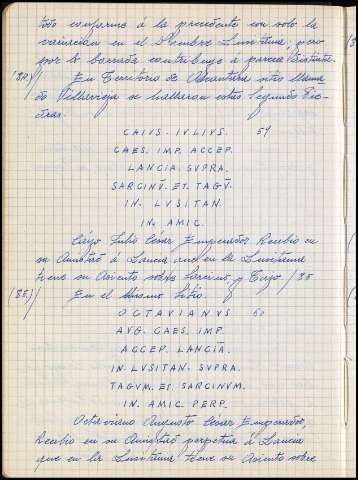 todo conforme á la precedente con solo la
variacion en el Nombre Lusitana, pero
por lo borrada contribuye á parecer
En Territorio de Alcantara sitio llama
do Villavieja se hallaron estas segundas Pie-
dras.
CAIUS. IVLIVS. 59
CAES. IMP. ACCEP.
LANCIA. SVPRA.
SARCINṼ. ET. TAGṼ.
IN. LVSITAN.
IN. AMIC.
Cayo Julio César Emperador Recibio en
su Amistad á Lancia que en la Lusitania
tiene su Asiento sobre Sarcino y Tajo /85
(85)/ En el Mismo Sitio
OCTAVIANVS 60
AVG. CAES. IMP.
ACCEP. LANCIÃ.
IN. LVSITAN. SVPRA.
TAGVM. ES. SARCINVM.
IN. AMIC. PERP.
Octaviano Augusto César Emperador,
Recibio en su Amistad perpetua á Lancia
que en la Lusitania tiene su Asiento sobre